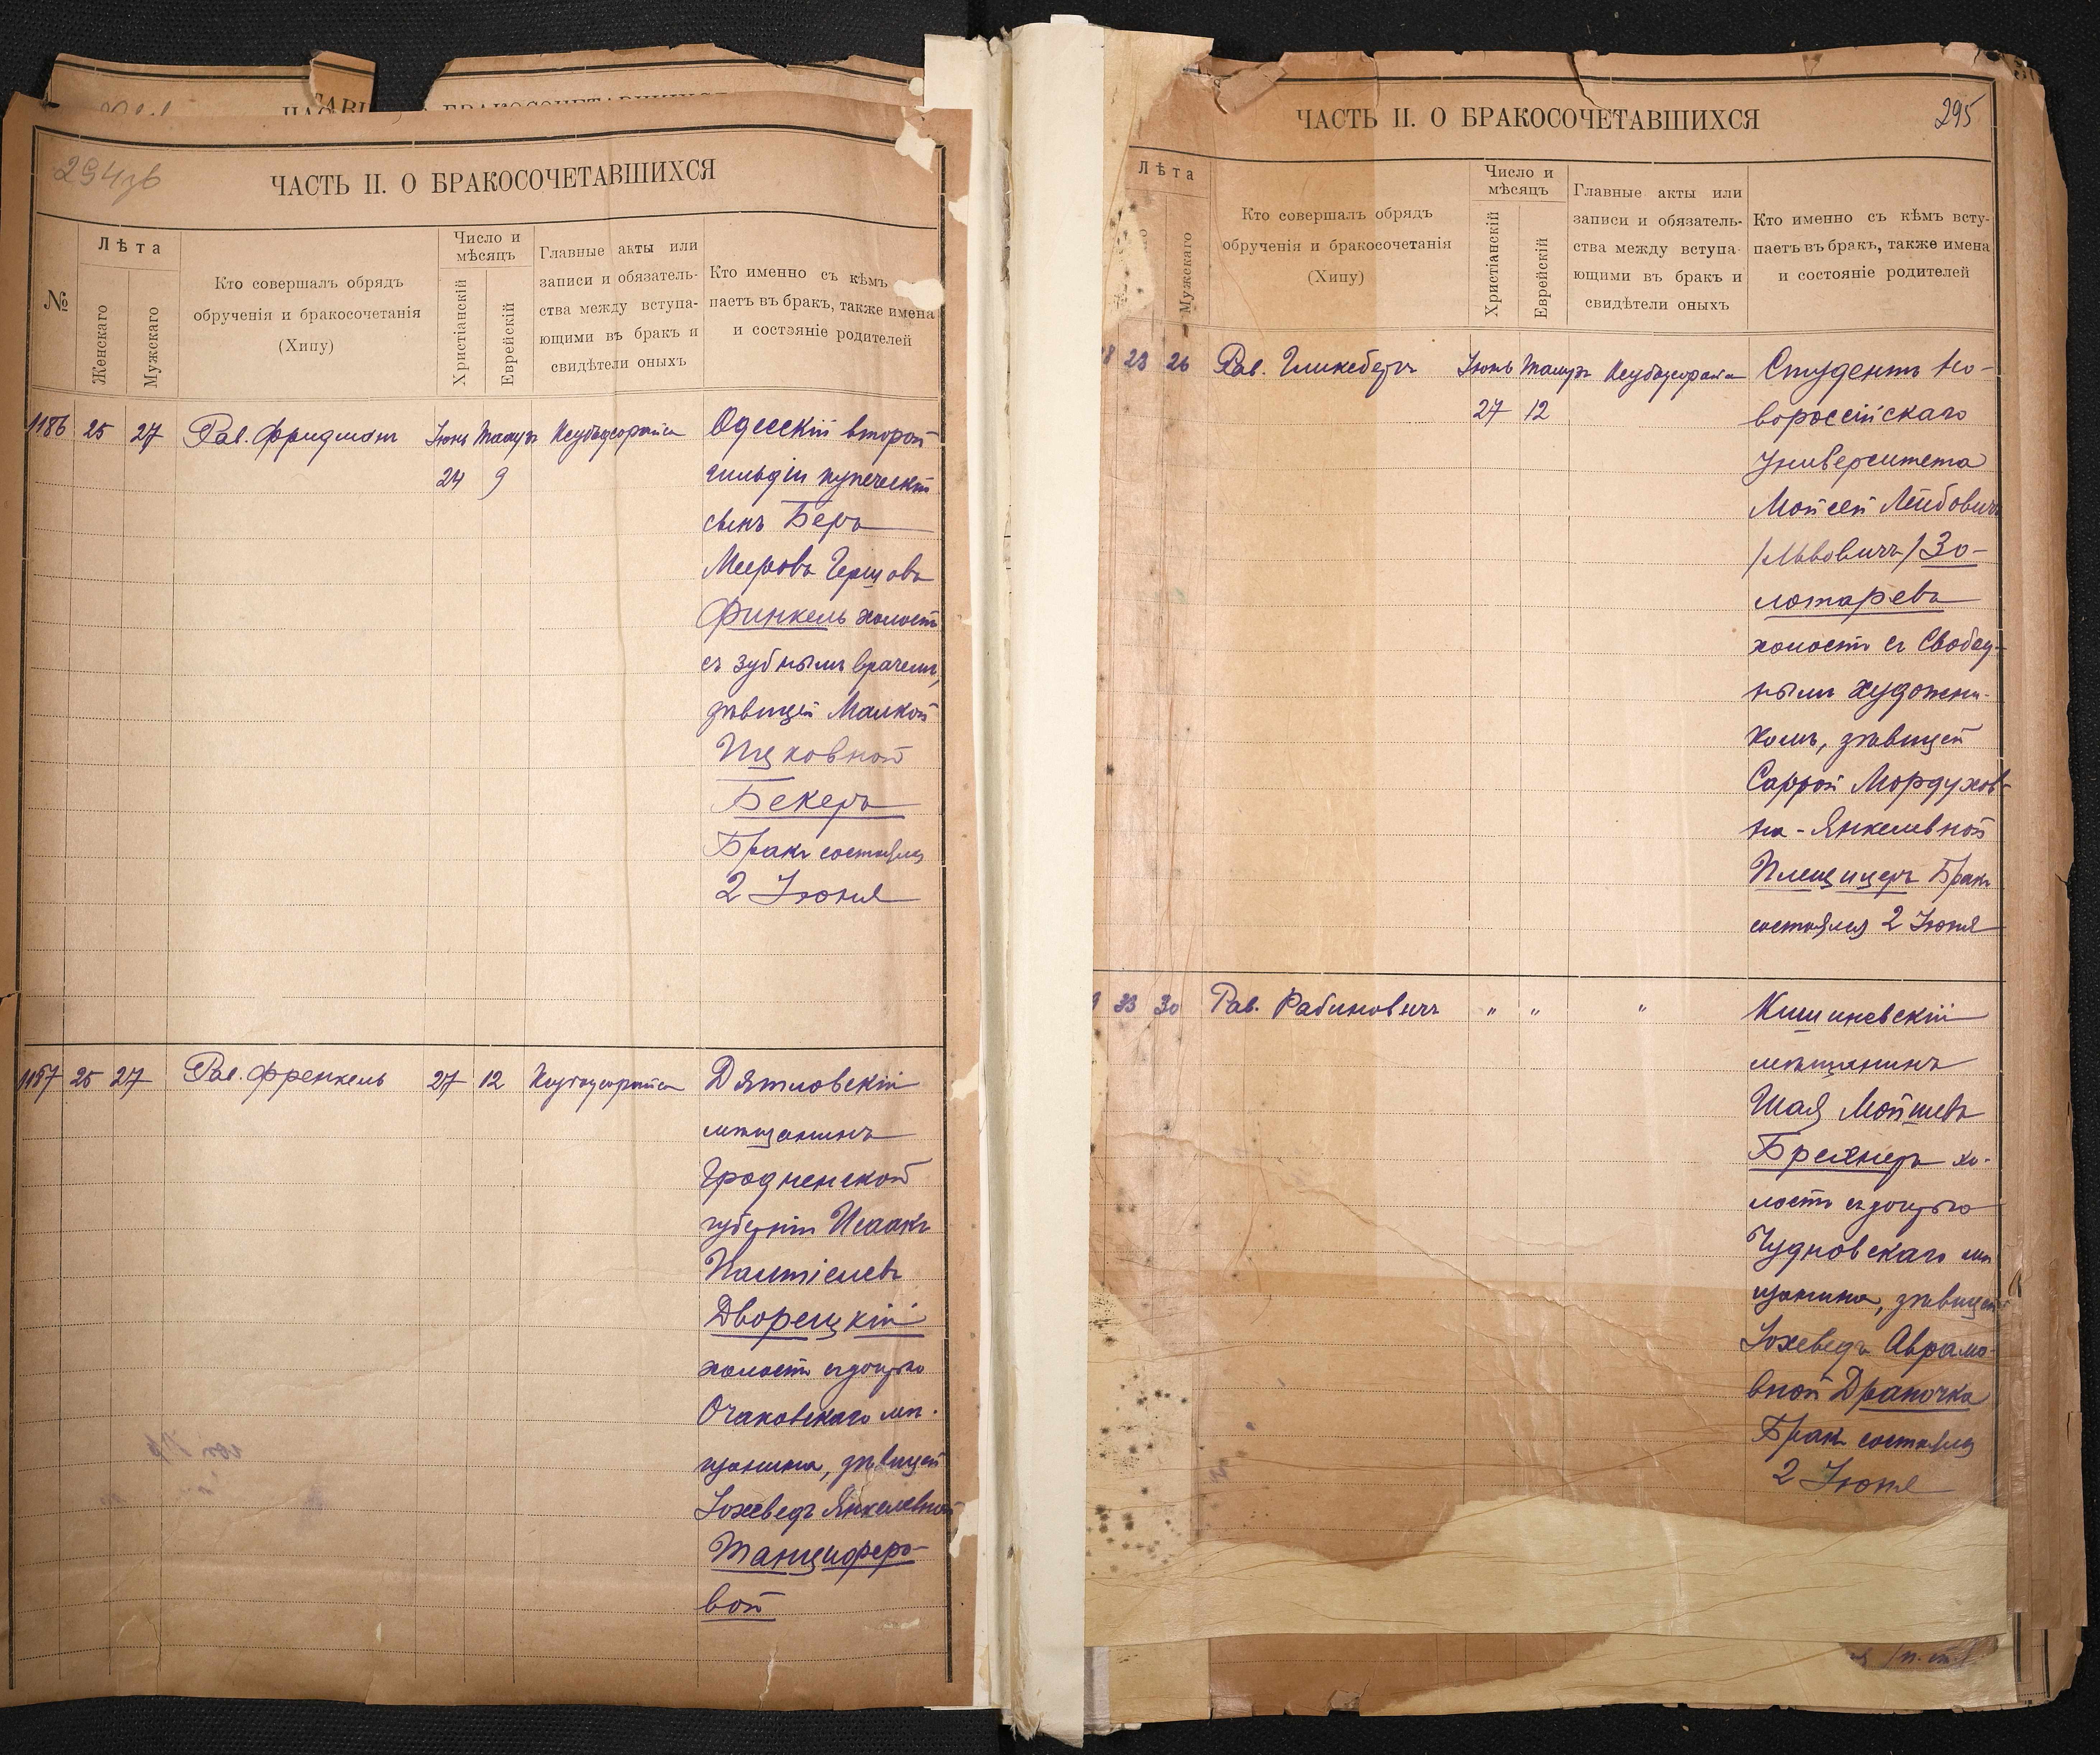 294зв
ЧАСТЬ II. О БРАКОСОЧЕТАВШИХСЯ
№
Лѣта
Женскаго
Мужскаго
Кто совершалъ обрядъ
обрученія и бракосочетанія
(Хипу)
Число и
мѣсяцъ
Христіанскій
Еврейскій
Главные акты или
записи и обязатель-
ства между вступа-
ющими въ бракъ и
свидѣтели оныхъ
Кто именно съ кѣмъ
паетъ въ бракъ, также имена
и состояніе родителей
1186 25 27 Рав. Фридманъ Іюнь Тамузъ
24 9
Одесскій второй
гильдіи купеческій
сынъ Беръ
Мееровъ Гершовъ
Финкель холостъ
съ зубнымъ врачемъ,
дѣвицей Малкой
Ицковной
Бекеръ
Бракъ состоялся
2 Іюня
1187 25 27 Рав. Френкель 27 12
Дятловскій
мѣщанинъ
Гродненской
губерніи Исаакъ
Палтіелевъ
Дворецкій
холостъ съ дочерью
Очаковскаго мѣ-
щанина, дѣвицей
Іохеведъ Янкелевной
Танцюферо-
вой
ЧАСТЬ II. О БРАКОСОЧЕТАВШИХСЯ
295
Лѣта
Мужскаго
Кто совершалъ обрядъ
обрученія и бракосочетанія
(Хипу)
Число и
мѣсяцъ
Христіанскій
Еврейскій
Главные акты или
записи и обязатель-
ства между вступа-
ющими въ бракъ и
свидѣтели оныхъ
Кто именно съ кѣмъ всту-
паетъ въ бракъ, также имена
и состояніе родителей
8 23 26 Рав. Гликсбергъ Іюнь Тамузъ
27 12
Студентъ Но-
вороссійскаго
Университета
Мойсей Лейбовичъ
/Львовичъ/ Зо-
лотаревъ
холостъ съ Свобод-
нымъ художни-
комъ, дѣвицей
Саррой Мордухов-
на-Янкелевной
Плещицеръ Бракъ
состоялся 2 Іюня
9 33 30 Рав. Рабиновичъ " " "
Кишиневскій
мѣщанинъ
Шая Мойшевъ
Брехнеръ хо-
лостъ съ дочерью
Чудновскаго мѣ
щанина, дѣвицей
Іохеведъ Аврамо-
вной Драпочка
Бракъ состоялся
2 Іюня